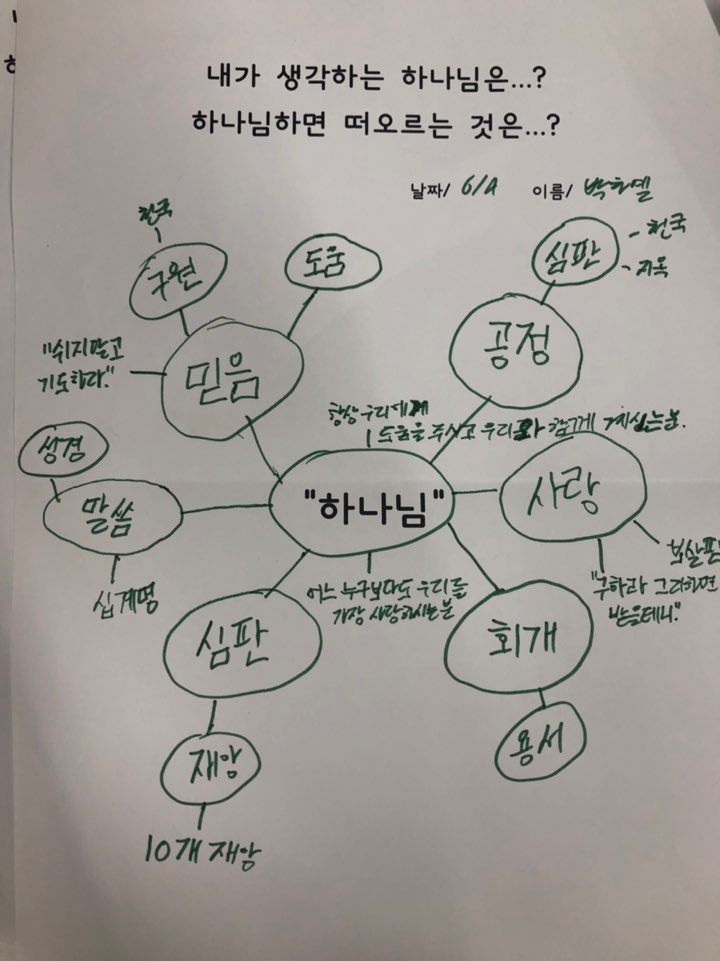 내가 생각하는 하나님은...?
하나님하면 떠오르는 것은...?
날짜/ 6/9 이름/
천국
구원
도움
심판
- 천국
- 지옥
"쉬지말고
기도하라."
믿음
공정
항상 우리에게
도움을 주시고 우리와 함께 계시는분.
성경
말씀
십계명
"하나님"
사랑
보살핌
"구하라 그리하면
받을테니."
어느 누구보다도 우리를
가장 사랑하시는분
심판
회개
재앙
용서
10개 재앙